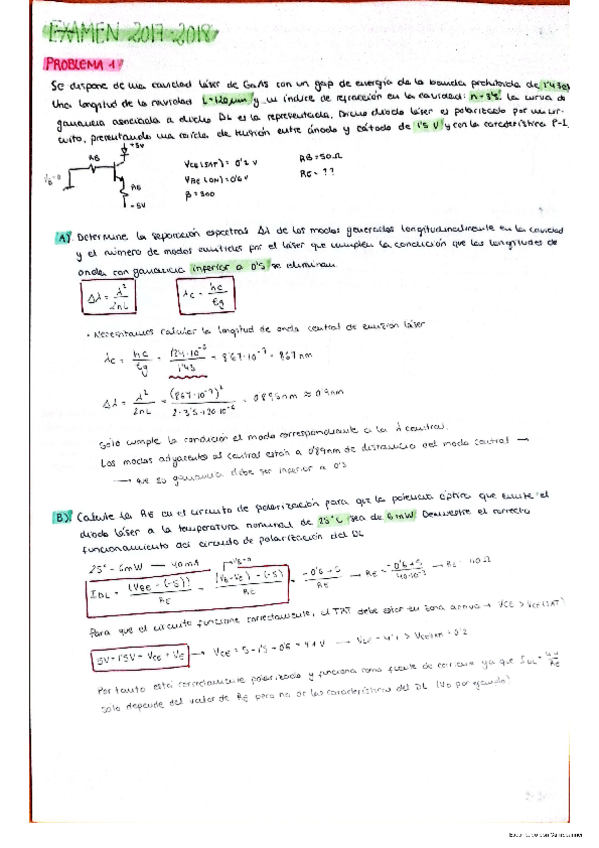 EXAMEN 2017-2018
PROBLEMA 1
Se dispone de una cavidad láser de GaAs con un gap de energía de la banda prohibida de 1'43eV
Una longitud de la cavidad L=120µm y un índice de refracción en la cavidad: n=3'5. La curva de
ganancia asociada a dicho DL es la representada. Dicho diodo láser es polarizado por un cir-
cuito, presentando una caída de tensión entre ánodo y cátodo de 1'5 V y con la característica P-I.
+5V
RB
VB=0
RE
-5V
VCE(SAT) = 0'2 V
VBE(ON) = 0'6 V
β = 300
RB = 50Ω
RE = ??
A) Determine la separación espectral Δλ de los modos generados longitudinalmente en la cavidad
y el número de modos emitidos por el láser que cumplen la condición que las longitudes de
onda con ganancia inferior a 0'5 se eliminan.
Δλ = λ²/2nL
λc = hc/Eg
• Necesitamos calcular la longitud de onda central de emisión láser
λc = hc/Eg = 1'24·10⁻⁶/1'43 = 8'67·10⁻⁷ = 867 nm
Δλ = λ²/2nL = (867·10⁻⁹)²/2·3'5·120·10⁻⁶ = 0'895nm ≈ 0'9nm
Sólo cumple la condición el modo correspondiente a la λ central.
Los modos adyacentes al central están a 0'89nm de distancia del modo central →
→ que su ganancia debe ser inferior a 0'5
B) Calcule la RE en el circuito de polarización para que la potencia óptica que emite el
diodo láser a la temperatura nominal de 25°C sea de 6mW. Demuestre el correcto
funcionamiento del circuito de polarización del DL
25° - 6mW — 40mA
VB=0
IDL = (VBE - (-5))/RE = (VB - VBE) - (-5)/RE = -0'6+5/RE → RE = -0'6+5/40·10⁻³ → RE = 110Ω
Para que el circuito funcione correctamente, el TRT debe estar en zona activa → VCE > VCE(SAT)
5V = 1'5V + VCE + VE → VCE = 5 - 1'5 + 0'6 = 4'1V → VCE = 4'1 > VCE(SAT) = 0'2
Por tanto está correctamente polarizado y funciona como fuente de corriente ya que IDL = 4'4/RE
sólo depende del valor de RE pero no de las características del DL (VD por ejemplo)